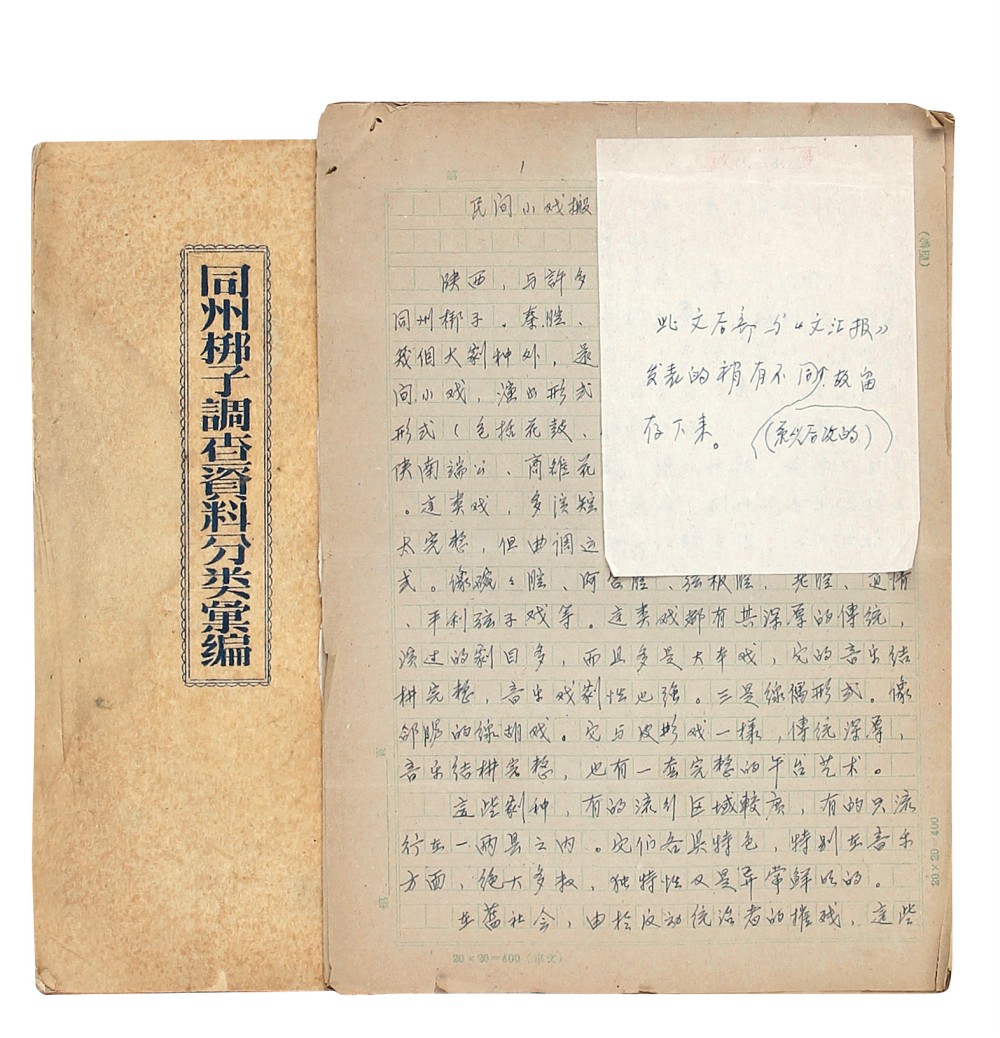 同州梆子調查資料分类彙編
1
民间小戏搬
陕西，与許多
同州梆子。秦腔、
幾個大剧种外，还
间小戏，演出形式
形式（包括花鼓、
陕南端公、商雒花
。这类戏，多演短
太完整，但曲调
式。像碗々腔、阿宫腔、弦板腔、老腔、道情
、平利弦子戏等。这类戏都有其深厚的傳统，
演过的剧目多，而且多是大本戏，它的音乐结
构完整，音乐戏剧性也强。三是線偶形式。像
郃阳的線胡戏。它与皮影戏一樣，傳统深厚，
音乐结构完整，也有一套完整的午台艺术。
这些剧种，有的流行区域較广，有的只流
行在一两县之内。它们各具特色，特别在音乐
方面，绝大多数，独特性又是异常鲜明的。
在舊社会，由於反动统治者的摧残，这些
20×20=400（京文）
20×20 400
此文后部与《文汇报》
发表的稍有不同，故留
存下来。（系以后改的）